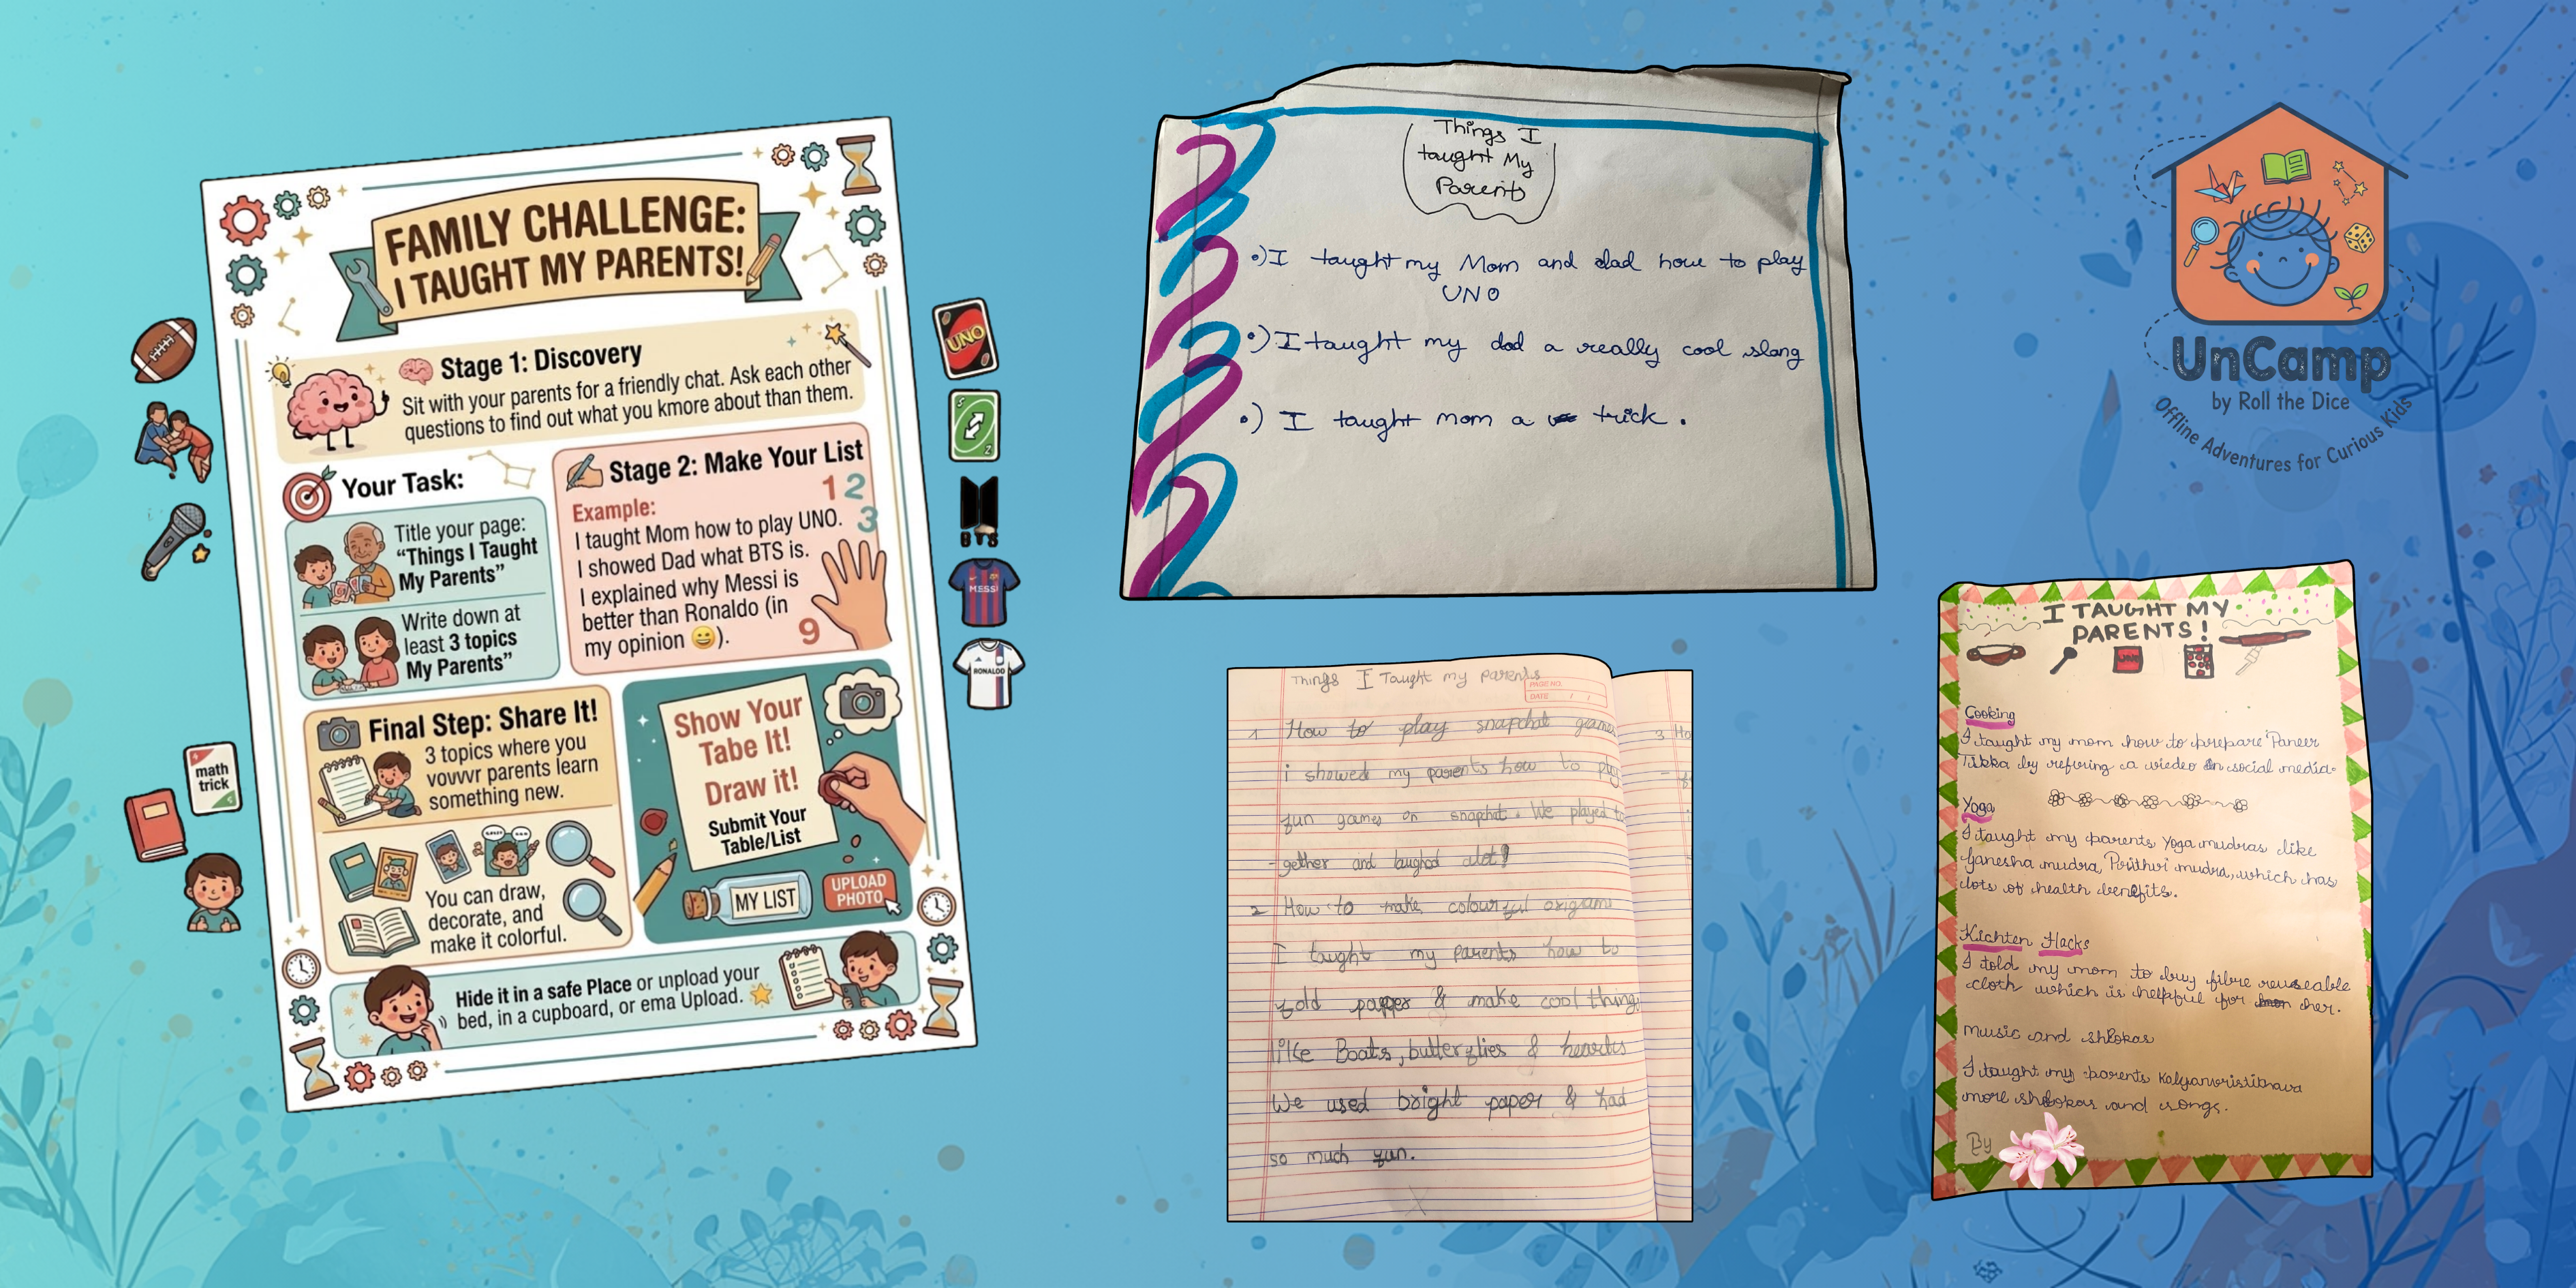 FAMILY CHALLENGE:
I TAUGHT MY PARENTS!
Stage 1: Discovery
Sit with your parents for a friendly chat. Ask each other
questions to find out what you kmore about than them.
Your Task:
Title your page:
“Things I Taught
My Parents”
Write down at
least 3 topics
My Parents”
Stage 2: Make Your List
1 2
3
Example:
I taught Mom how to play UNO.
I showed Dad what BTS is.
I explained why Messi is
better than Ronaldo (in
my opinion 😄).
9
Final Step: Share It!
3 topics where you
vovvvr parents learn
something new.
You can draw,
decorate, and
make it colorful.
Show Your
Tabe It!
Draw it!
Submit Your
Table/List
MY LIST
UPLOAD
PHOTO
Hide it in a safe Place or unpload your
bed, in a cupboard, or ema Upload.
math
trick
UNO
BTS
MESSI
RONALDO
Things I
taught My
Parents
•) I taught my Mom and dad how to play
UNO
•) I taught my dad a really cool slang
•) I taught mom a trick.
Things I Taught my Parents
PAGE NO.
DATE / /
1 How to play snapchat games
i showed my parents how to play
fun games on snapchat. We played to
-gether and laughed alot!
2 How to make colourful origami
I taught my parents how to
fold papper & make cool things
like Boats, butterflies & hearts
We used bright paper & had
so much fun.
3 Ho
UnCamp
by Roll the Dice
Offline Adventures for Curious Kids
I TAUGHT MY
PARENTS!
Cooking
I taught my mom how to prepare Paneer
Tikka by refering a viedeo on social media.
Yoga
I taught my parents Yoga mudras like
Ganesha mudra, Prithvi mudra, which has
lots of health benefits.
Kichten Hacks
I told my mom to buy fibre reuseable
cloth which is helpful for her.
music and shlokas
I taught my parents
more shlokas and songs.
By